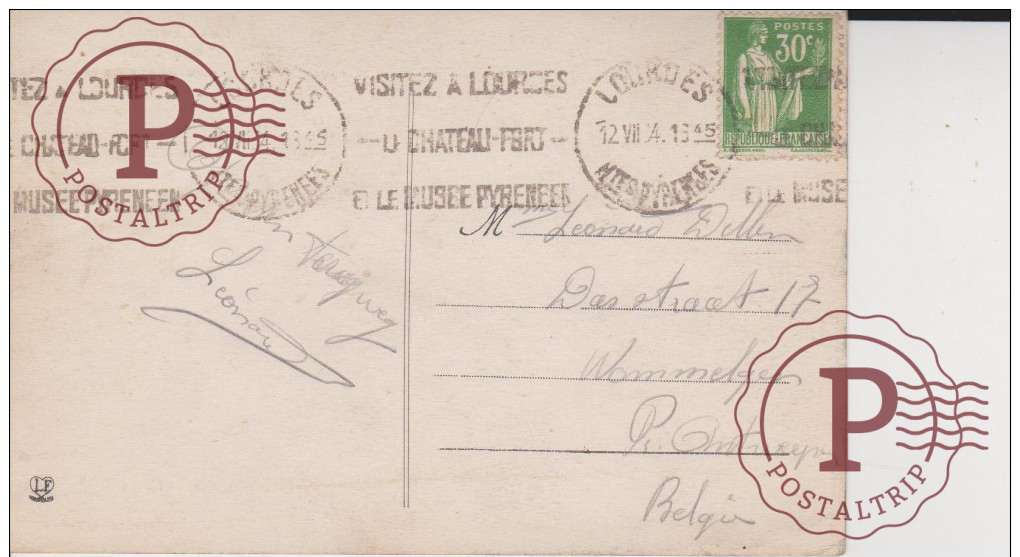 VISITEZ A LOURDES
LE CHATEAU-FORT
ET LE MUSEE PYRENEEN
LOURDES
12 VII 34. 18 45
HTES PYRENEES
POSTES
30c
REPUBLIQUE FRANÇAISE
TEZ A LOURDES
E CHATEAU-FORT
MUSEE PYRENEEN
LOURDES
12 VII 34. 18 45
HTES PYRENEES
ET LE MUSE
Mme Léonard Dillen
Dasstraat 17
Wommelgem
Pr. Antwerpen
Belgie
Terugweg
Léonard
LF
P
POSTALTRIP
P
POSTALTRIP